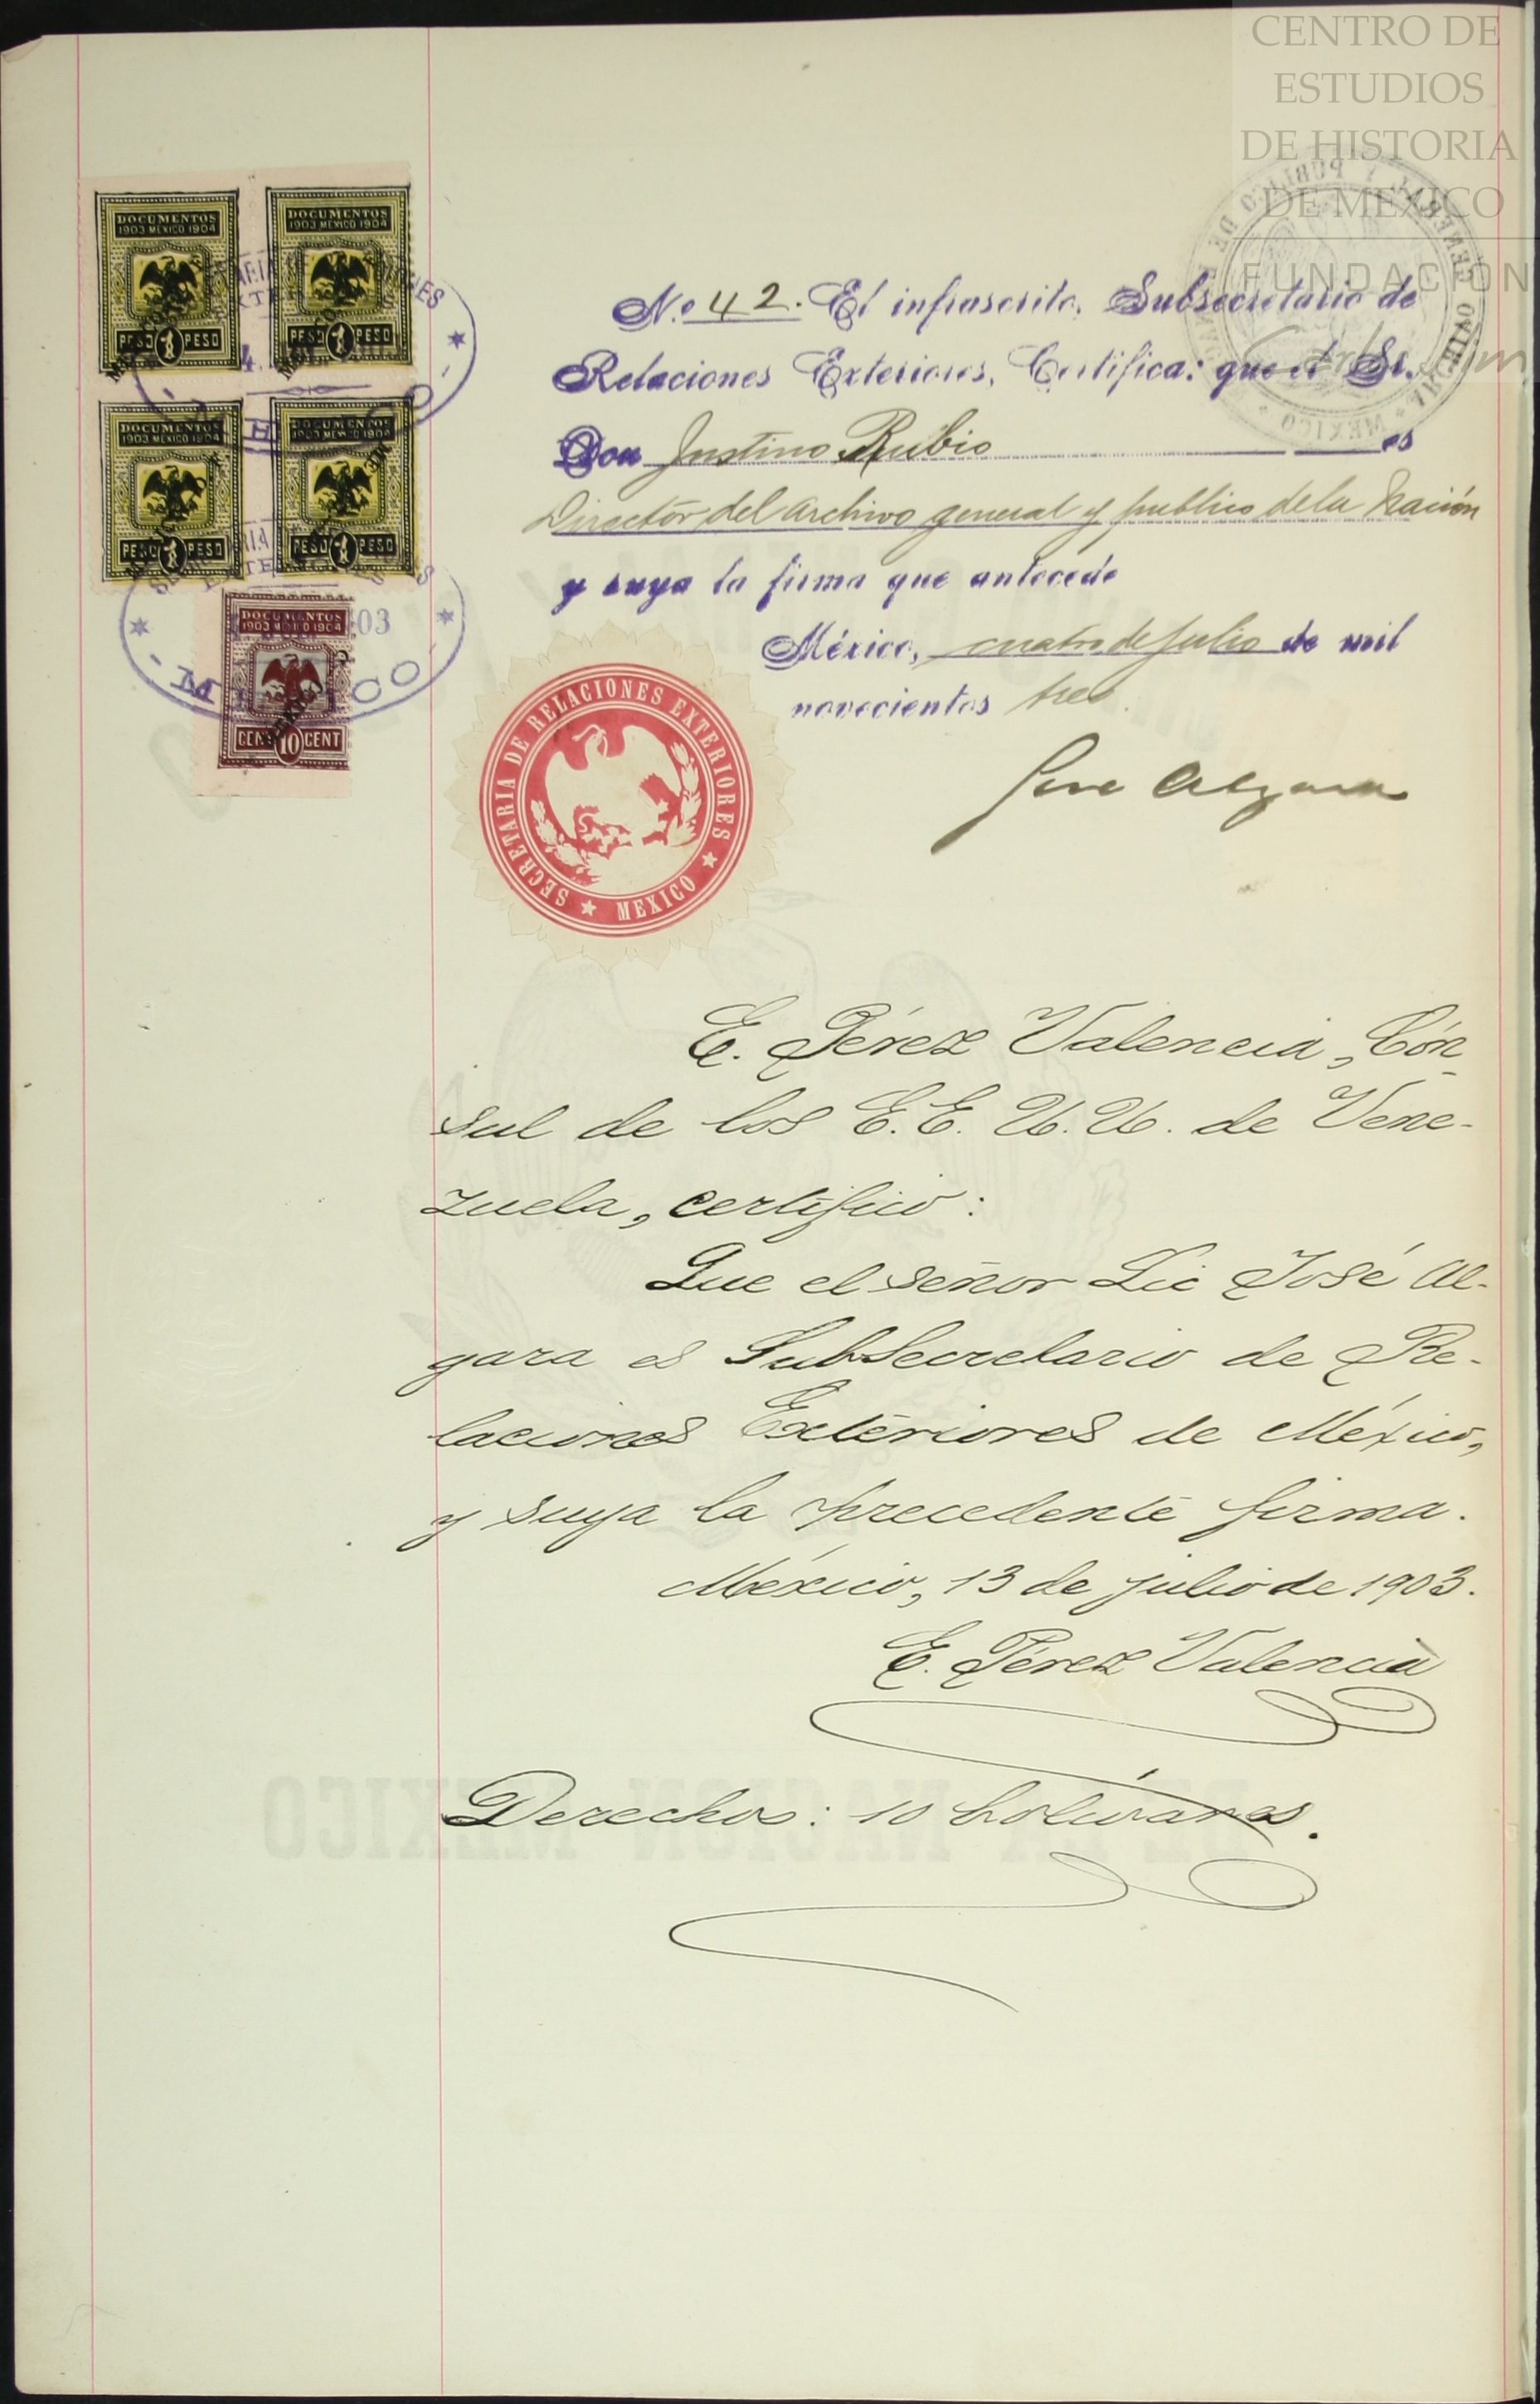 CENTRO DE
ESTUDIOS
DE HISTORIA
DE MEXICO
FUNDACIÓN
DOCUMENTOS
1903 MEXICO 1904
PESO 1 PESO
DOCUMENTOS
1903 MEXICO 1904
PESO 1 PESO
DOCUMENTOS
1903 MEXICO 1904
PESO 1 PESO
DOCUMENTOS
1903 MEXICO 1904
PESO 1 PESO
DOCUMENTOS
1903 MEXICO 1904
CENT 10 CENT
MEXICO
No. 42. El infrascrito, Subsecretario de
Relaciones Exteriores, Certifica: que el Sr.
Don Justino Rubio es
Director del archivo general y publico de la Nación
y suya la firma que antecede
México, cuatro de Julio de mil
novecientos tres.
José Algara
SECRETARIA DE RELACIONES EXTERIORES
★ MEXICO ★
E. Pérez Valencia, Cón-
sul de los E.E. U.U. de Vene-
zuela, certifico:
Que el señor Lic José Al-
gara es SubSecretario de Re-
laciones Exteriores de México,
y suya la precedente firma.
México, 13 de julio de 1903.
E. Pérez Valencia
Derechos: 10 bolívares.
DE LA NACION MEXICO